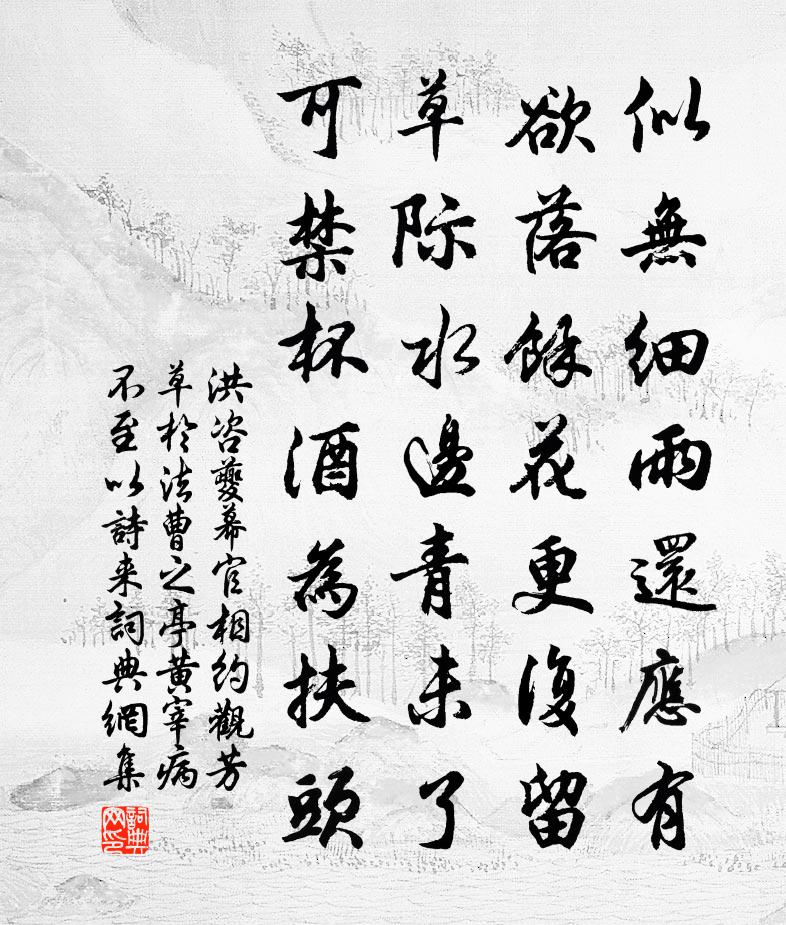 似無細雨還應有
欲落餘花更復留
草際水邊青未了
可禁杯酒為扶頭
洪咨夔幕官相約觀芳
草於法曹之亭黃宰病
不至以詩来詞典網集
詞典
网印